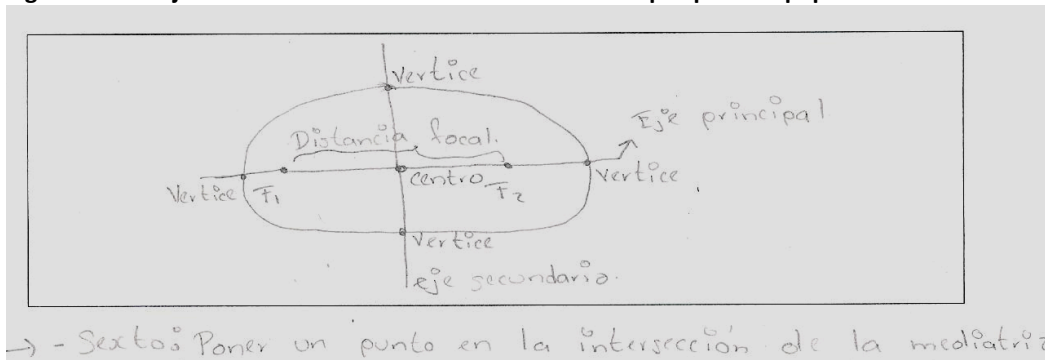 Vertice
Eje principal
Distancia focal.
Vertice F₁ centro F₂ Vertice
Vertice
eje secundario.
→ - Sexto: Poner un punto en la intersección de la mediatriz